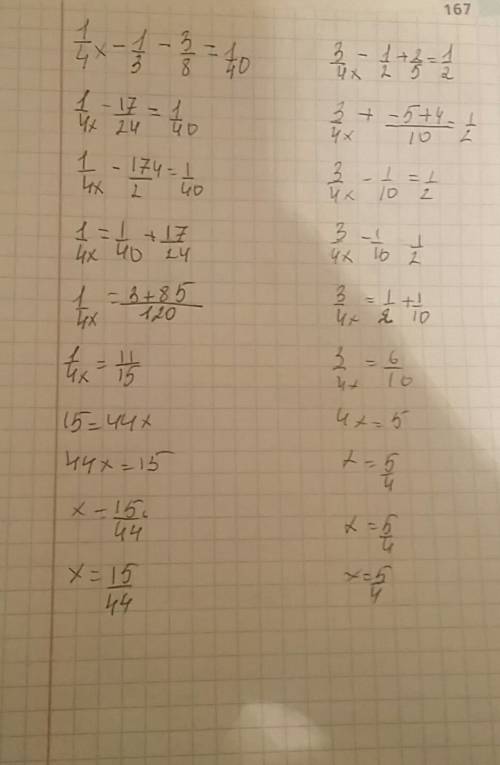 167
1/4 x - 1/3 - 3/8 = 1/40
1/4x - 17/24 = 1/40
1/4x - 174/2 = 1/40
1/4x = 1/40 + 17/24
1/4x = 3+85/120
1/4x = 11/15
15=44x
44x=15
x = 15/44
x = 15/44
3/4x - 1/2 + 2/5 = 1/2
3/4x + -5+4/10 = 1/2
3/4x - 1/10 = 1/2
3/4x - 1/10 1/2
3/4x = 1/2 + 1/10
3/4x = 6/10
4x=5
x = 5/4
x = 5/4
x = 5/4